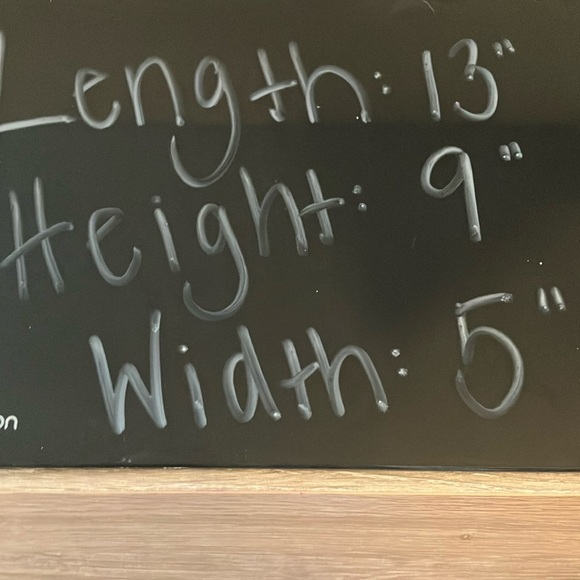 Length: 13"
Height: 9"
Width: 5"
on